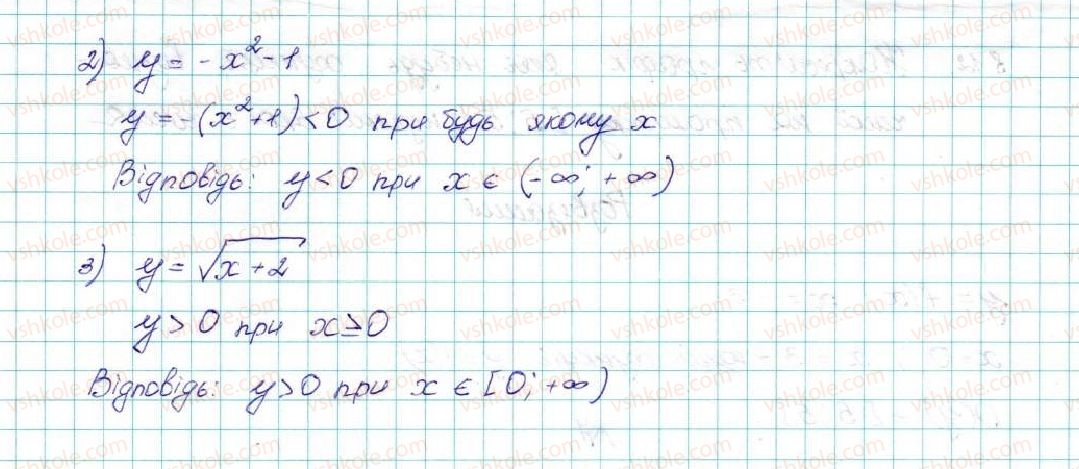 2) y = -x² - 1
y = -(x² + 1) < 0 при будь якому x
Відповідь: y < 0 при x ∈ (-∞; +∞)
3) y = √(x + 2)
y > 0 при x ≥ 0
Відповідь: y > 0 при x ∈ [0; +∞)